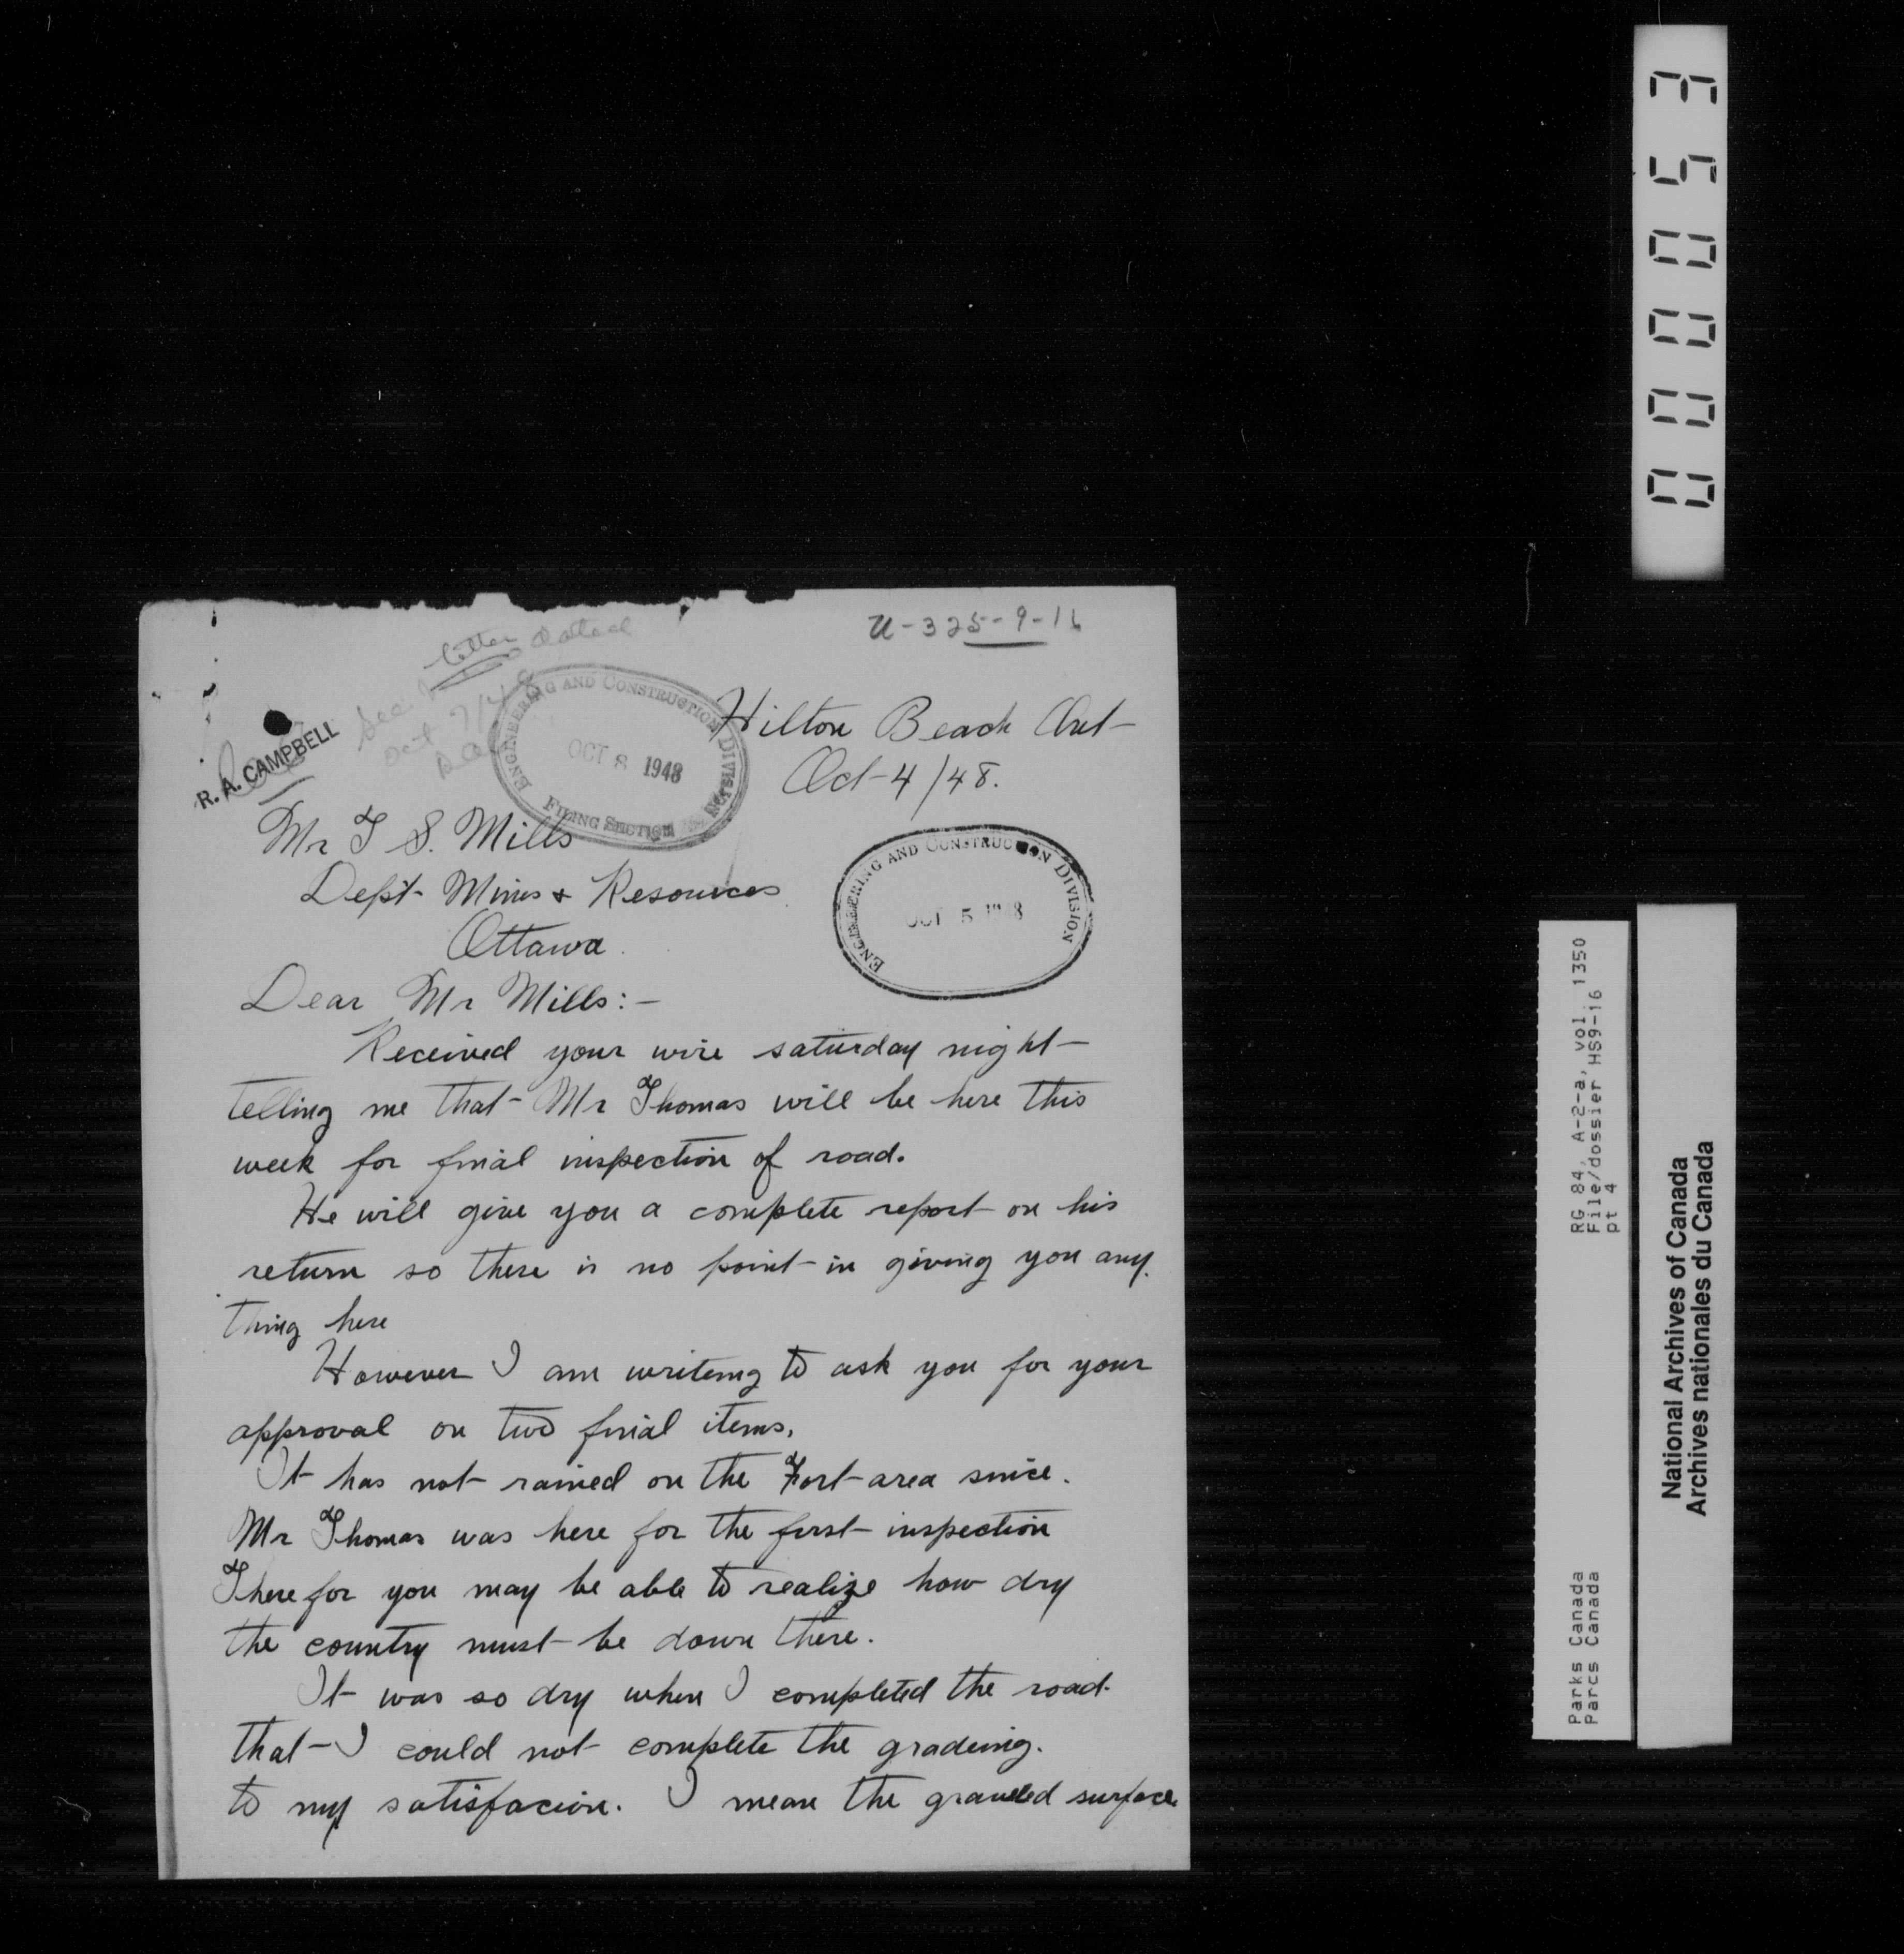 U-325-9-16
letter dated
See
Oct 7/48
R. A. CAMPBELL
ENGINEERING AND CONSTRUCTION DIVISION
OCT 8 1948
FILING SECTION
Hilton Beach Ont
Oct 4/48.
Mr T S. Mills
Dept Mines & Resources
Ottawa.
ENGINEERING AND CONSTRUCTION DIVISION
OCT 5 1948
Dear Mr Mills:-
Received your wire saturday night
telling me that Mr Thomas will be here this
week for final inspection of road.
He will give you a complete report on his
return so there is no point in giving you any
thing here
However I am writeing to ask you for your
approval on two final items.
It has not rained on the Fort area since.
Mr Thomas was here for the first inspection
There for you may be able to realize how dry
the country must be down there.
It was so dry when I completed the road.
that I could not complete the gradeing.
to my satisfacion. I mean the graveled surface.
000053
RG 84, A-2-a, vol. 1350
File/dossier HS9-16
pt 4
Parks Canada
Parcs Canada
National Archives of Canada
Archives nationales du Canada